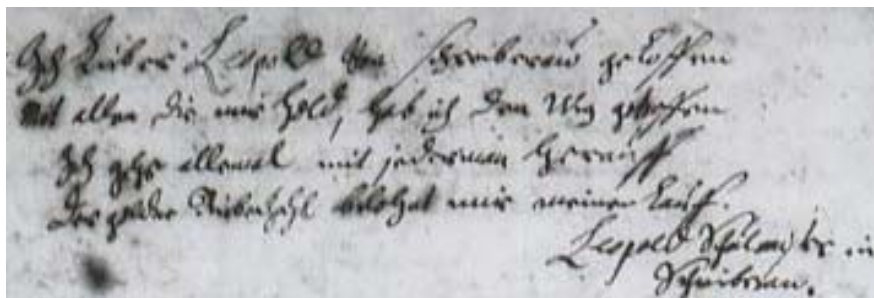 Ich Lieber Leopold von Schreiberau geloffen
Mit allen die mir hold, hab ich den Weg getroffen
Ich gehe allemal mit jederman herauff
Der Rübezahl belohnt mir meinen Lauff.
Leopold in
Schreiberau.